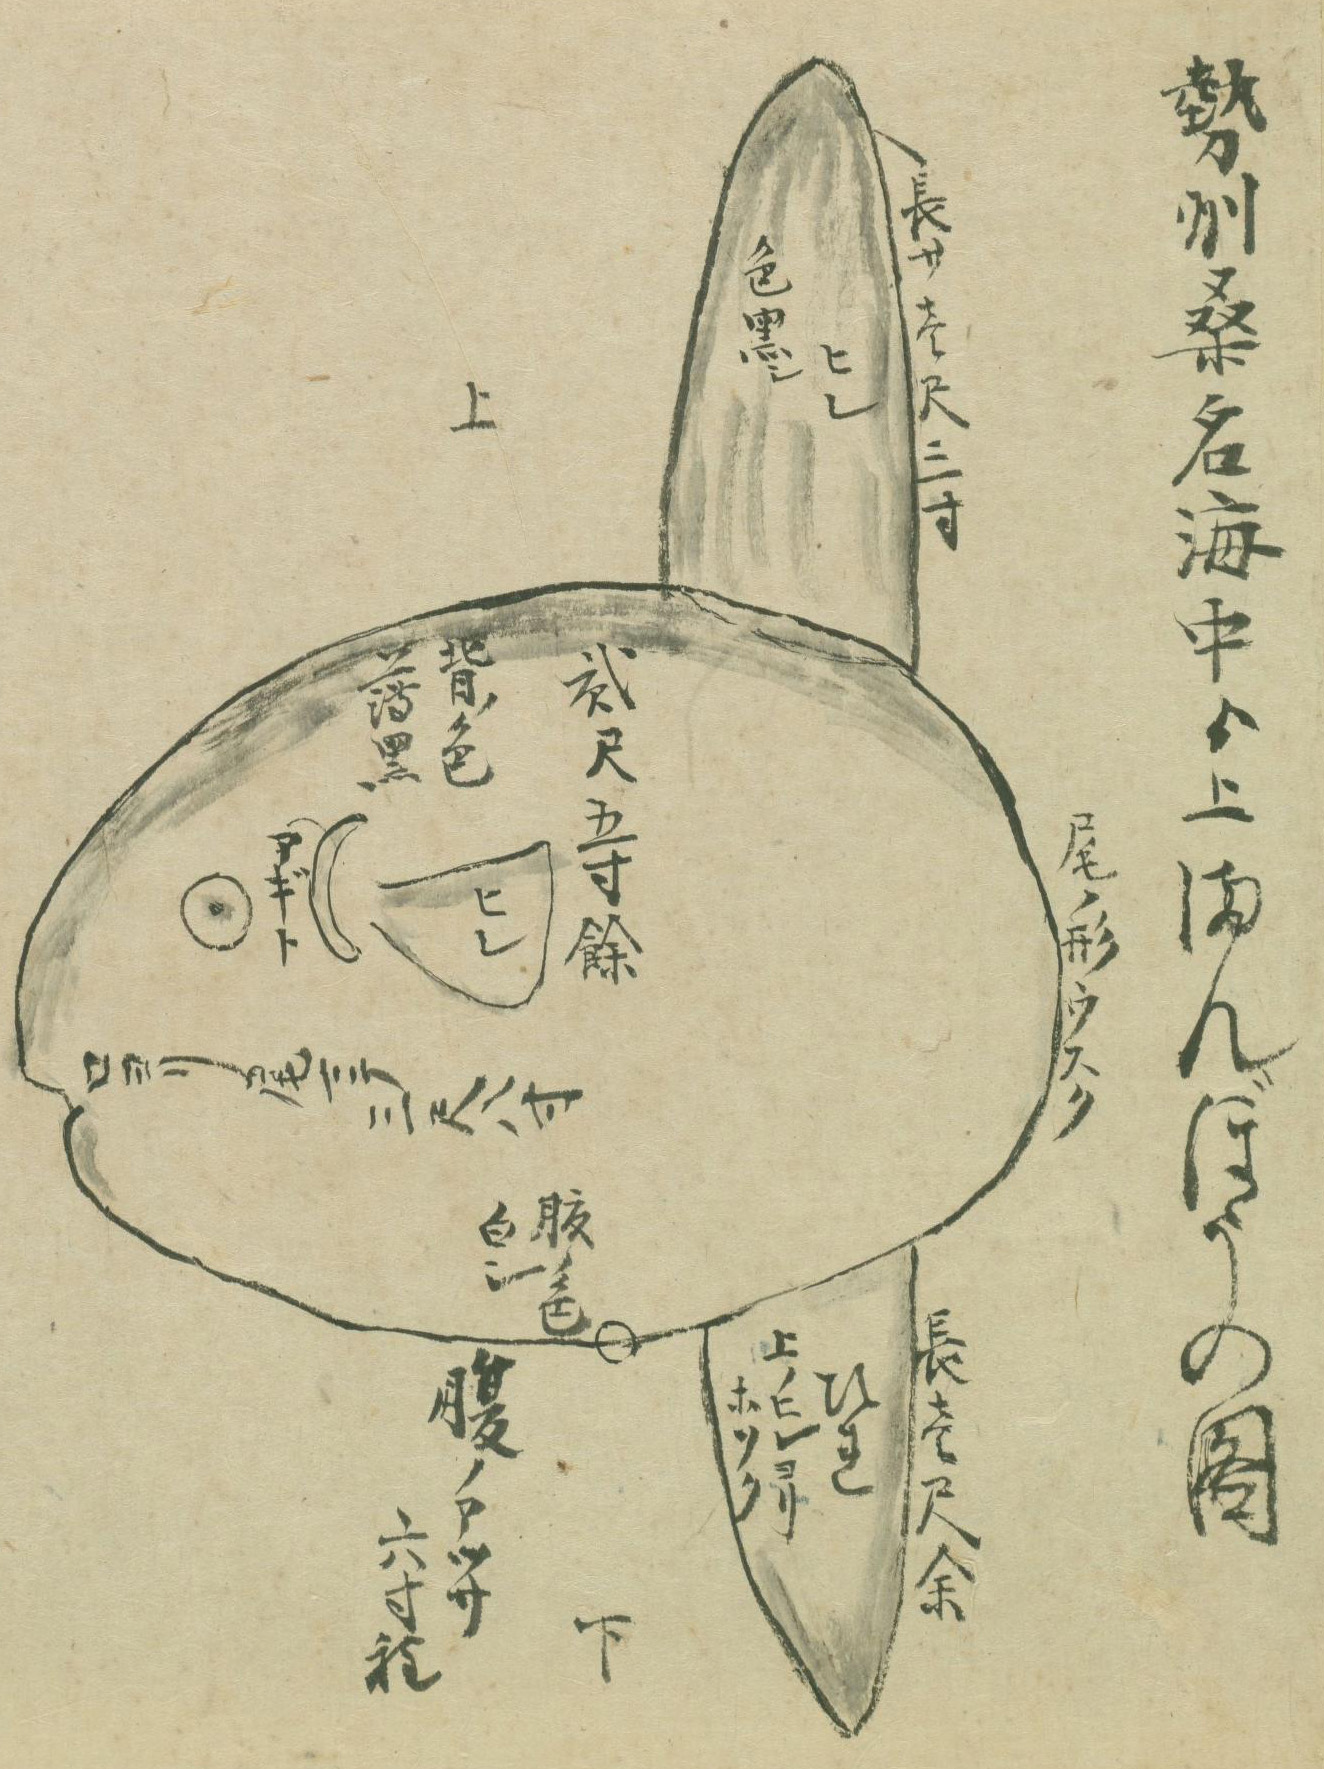 勢州桑名海中ゟ上まんぼうの圖
長サ壱尺三寸
ヒレ
色黒シ
上
尾ノ形ウスク
貳尺五寸餘
背ノ色
薄黒
ヒレ
アギト
口ヨリ尾マテ
三尺八寸
腹色
白シ
長壱尺余
ひれ
上ノヒレヨリ
ホソク
腹ノアツサ
六寸程
下